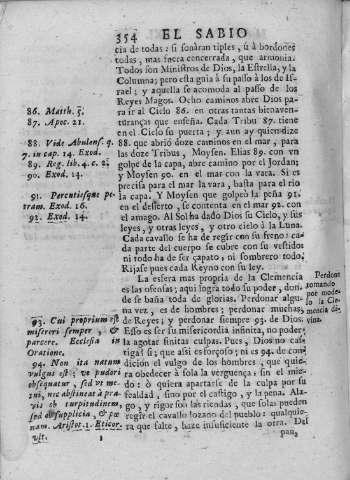 354 EL SABIO
cia de todas: si sonàran tiples, ù à bordones
todas, mas fuera cencerrada, que armonia.
Todos son Ministros de Dios, la Estrella, y la
Columna; pero esta guia à su passo à los de Is-
rael; y aquella se acomoda al passo de los
Reyes Magos. Ocho caminos abre Dios pa-
ra ir al Cielo 86. en otras tantas bienaven-
turanças que enseña. Cada Tribu 87. tiene
en el Cielo su puerta; y aun ay quien dize
88. que abriò doze caminos en el mar, para
las doze Tribus, Moysen. Elias 89. con vn
golpe de la capa, abre camino por el Jordan;
y Moysen 90. en el mar con la vara. Si es
precisa para el mar la vara, basta para el rio
la capa. Y Moysen que golpeò la peña 91.
en el desierto, se contenta en el mar 92. con
el amago. Al Sol ha dado Dios su Cielo, y sus
leyes, y otras leyes, y otro cielo à la Luna.
Cada cavallo se ha de regir con su freno: ca-
da parte del cuerpo se cubre con su vestido:
ni todo ha de ser çapato, ni sombrero todo.
Rijase pues cada Reyno con su ley.
La esfera mas propria de la Clemencia
es las ofensas; aqui logra todo su poder, don-
de se baña toda de glorias. Perdonar algu-
na vez, es de hombres; perdonar muchas,
de Reyes; y perdonar siempre 93. de Dios.
Esso es ser su misericordia infinita, no poder-
la agotar finitas culpas. Pues, Dios no cas-
tiga? si; que assi es forçoso; ni es 94. de con-
dicion el vulgo de los hombres, que quie-
ra obedecer à sola la verguença; sin el mie-
do: ò quiera apartarse de la culpa por su
fealdad, sino por el castigo, y la pena. Ala-
go, y rigor son las riendas, que solas pueden
regir el cavallo lozano del pueblo: qualquie-
ra que falte, haze insuficiente la otra. Del
pau-
86. Matth. 5.
87. Apoc. 21.
88. Vide Abulens. q.
7. in cap. 14. Exod.
89. Reg. lib. 4. c. 2.
90. Exod. 14.
91. Percutiesque pe-
tram. Exod. 16.
92. Exod. 14.
93. Cui proprium est
misereri semper, &
parcere. Ecclesia in
Oratione.
94. Non ita natum
vulgus est; ve pudori
obsequatur, sed ve me-
tui, nec abstineat à pra-
vis ob turpitudinem,
sed ob supplicia, & pœ
nam. Aristot. 1. Eticor.
Perdonar
tomando
por mode-
lo la Cle-
mencia di-
vina.